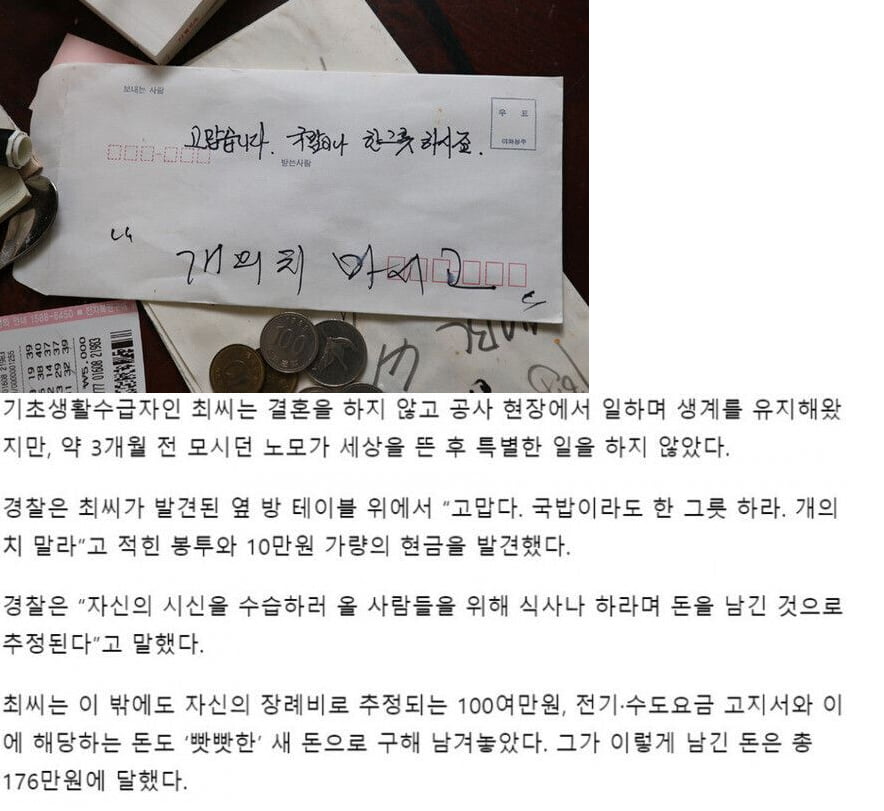 보내는 사람
우 표
고맙습니다. 국밥이나 한그릇 하시죠.
받는사람
"
개의치 마시고
"
1588-6450 ■ 전자복권
₩5,000
01608 21983
100
기초생활수급자인 최씨는 결혼을 하지 않고 공사 현장에서 일하며 생계를 유지해왔
지만, 약 3개월 전 모시던 노모가 세상을 뜬 후 특별한 일을 하지 않았다.
경찰은 최씨가 발견된 옆 방 테이블 위에서 “고맙다. 국밥이라도 한 그릇 하라. 개의
치 말라”고 적힌 봉투와 10만원 가량의 현금을 발견했다.
경찰은 “자신의 시신을 수습하러 올 사람들을 위해 식사나 하라며 돈을 남긴 것으로
추정된다”고 말했다.
최씨는 이 밖에도 자신의 장례비로 추정되는 100여만원, 전기·수도요금 고지서와 이
에 해당하는 돈도 ‘빳빳한’ 새 돈으로 구해 남겨놓았다. 그가 이렇게 남긴 돈은 총
176만원에 달했다.